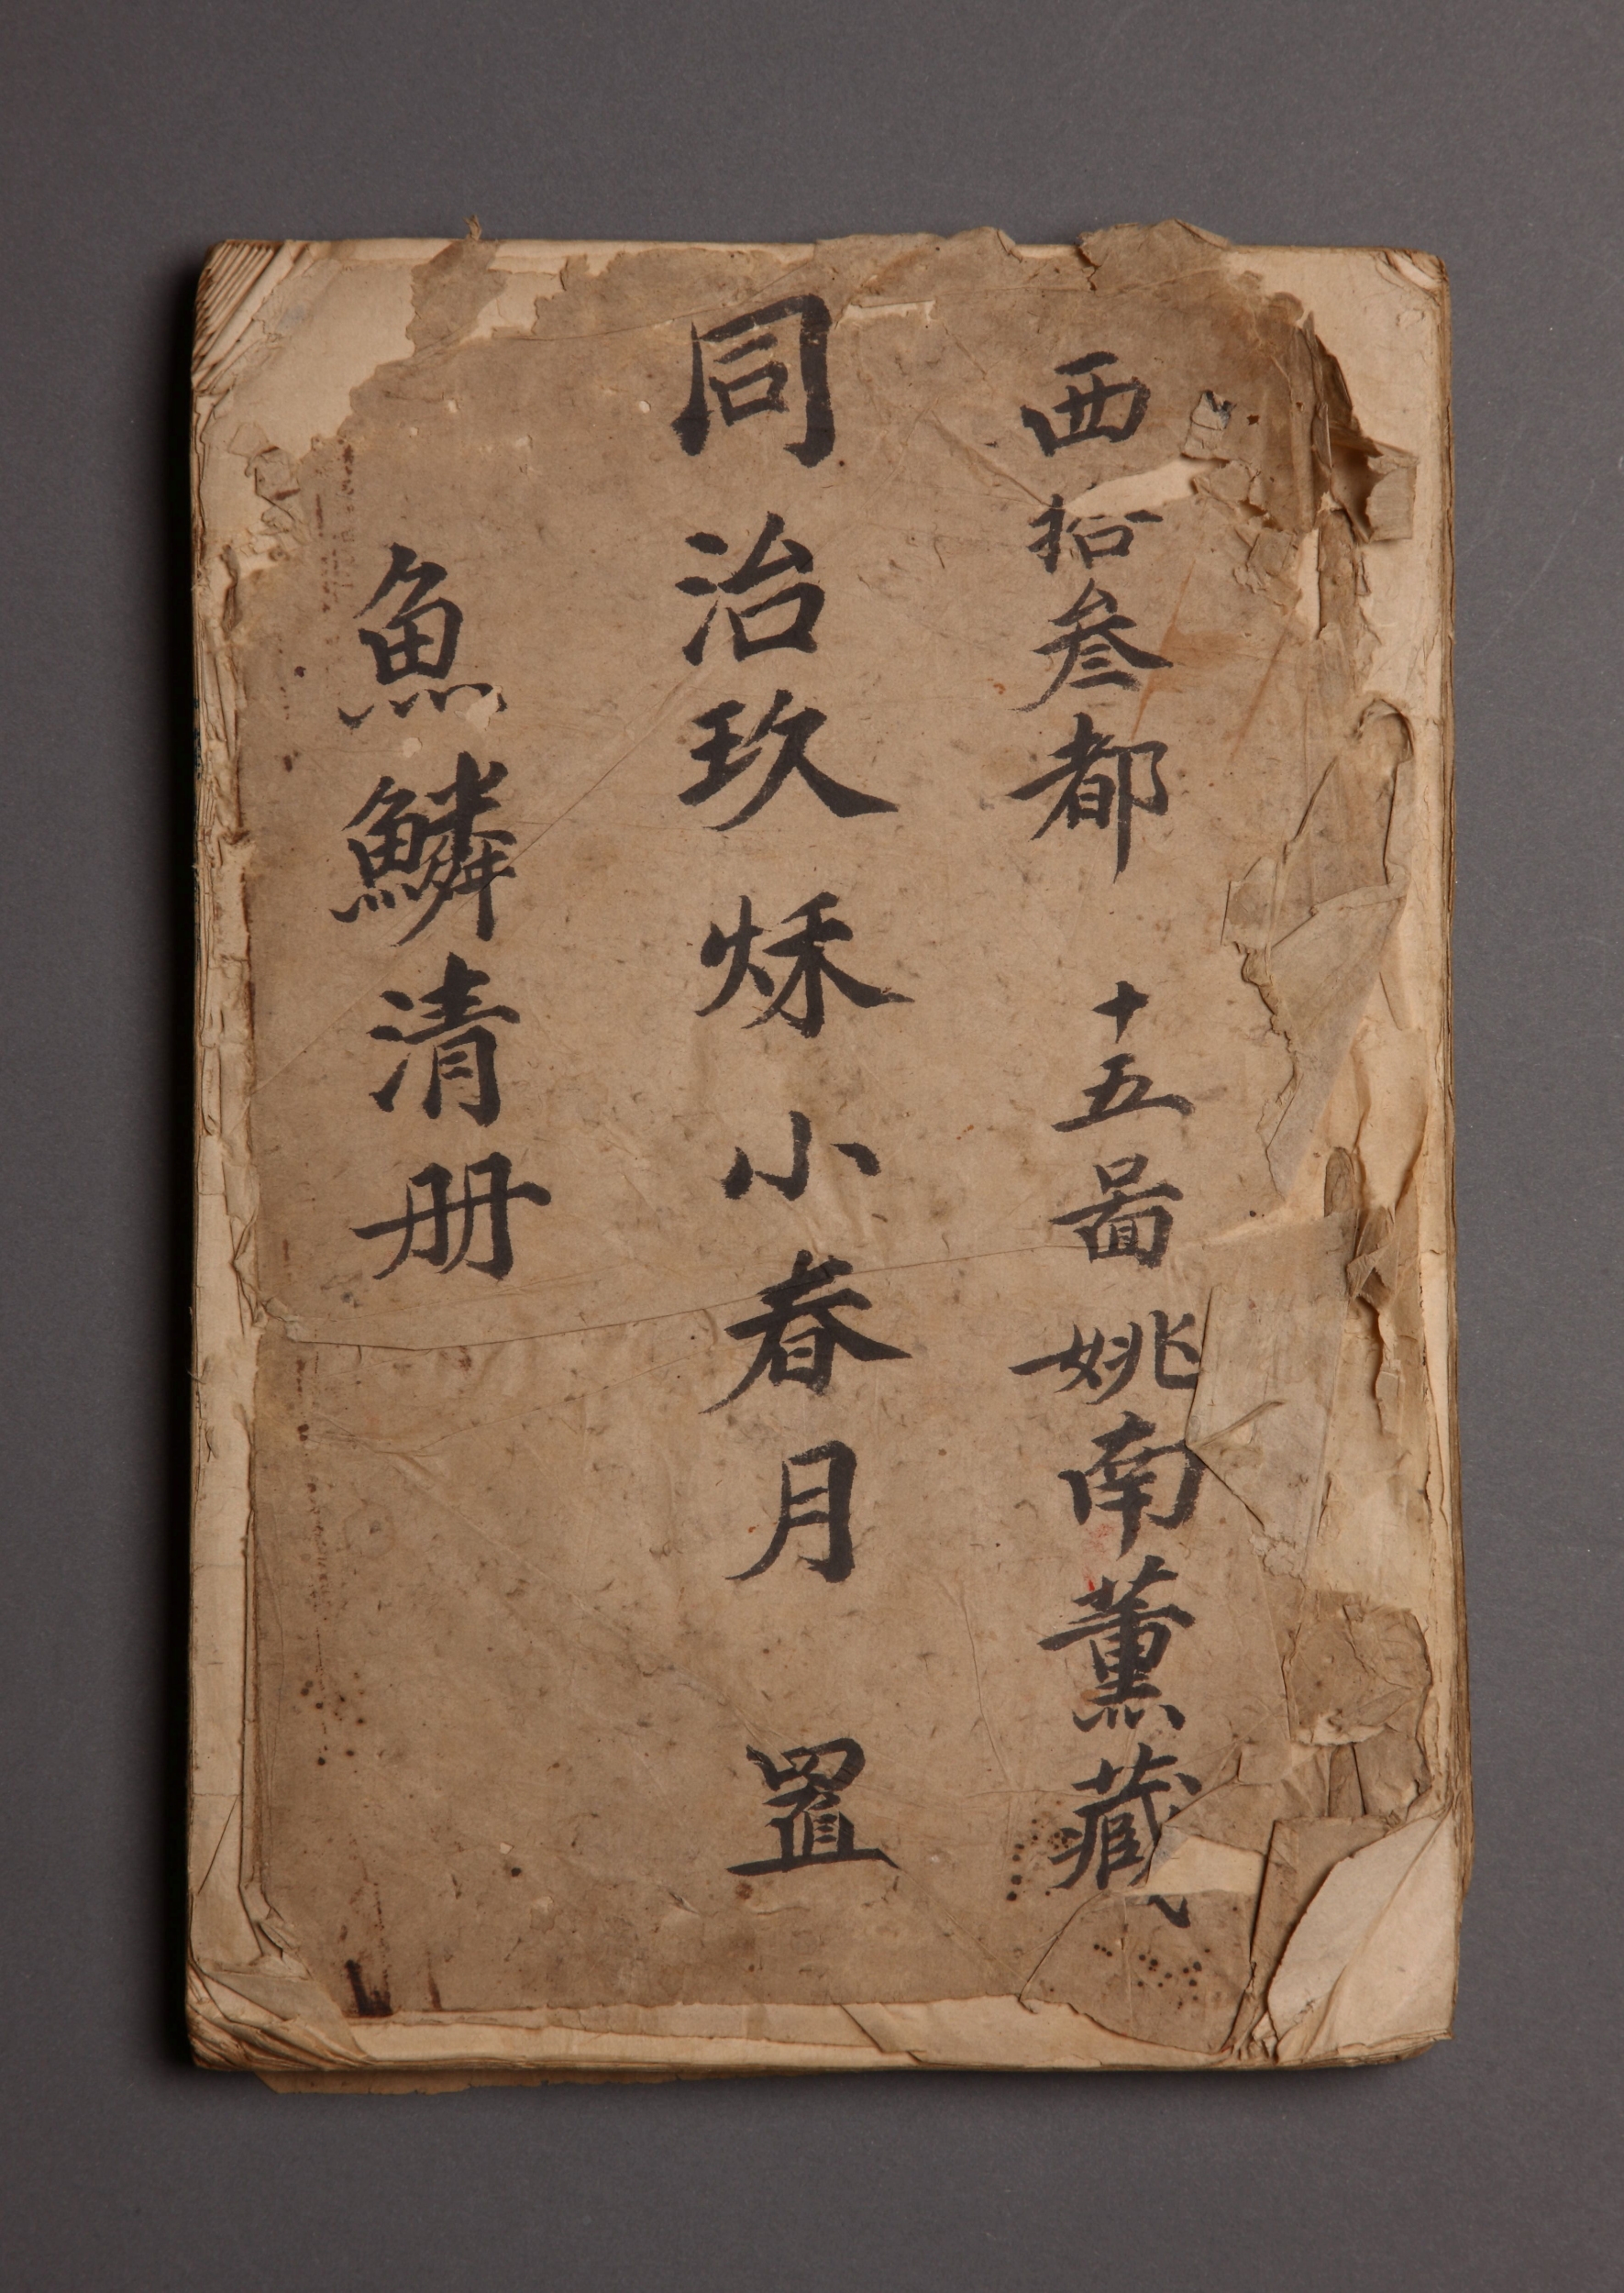 西拾叁都 十五啚 姚南薰藏
同治玖烁小春月 置
魚鱗清册